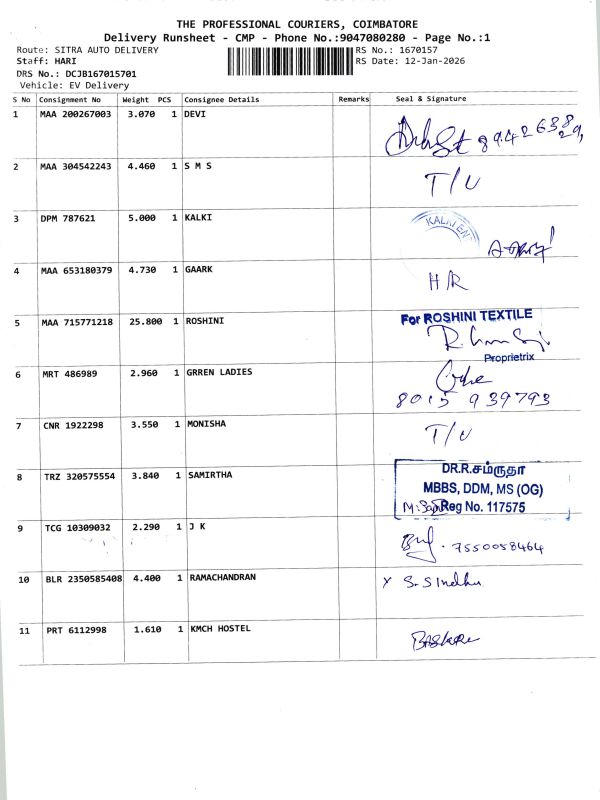 THE PROFESSIONAL COURIERS, COIMBATORE
Delivery Runsheet - CMP - Phone No.:9047080280 - Page No.:1
Route: SITRA AUTO DELIVERY RS No.: 1670157
Staff: HARI RS Date: 12-Jan-2026
DRS No.: DCJB167015701
Vehicle: EV Delivery
S No Consignment No Weight PCS Consignee Details Remarks Seal & Signature
1 MAA 200267003 3.070 1 DEVI
2 MAA 304542243 4.460 1 S M S T/U
3 DPM 787621 5.000 1 KALKI
4 MAA 653180379 4.730 1 GAARK H/R
5 MAA 715771218 25.800 1 ROSHINI For ROSHINI TEXTILE
Proprietrix
6 MRT 486989 2.960 1 GRREN LADIES
8015 939793
7 CNR 1922298 3.550 1 MONISHA T/U
8 TRZ 320575554 3.840 1 SAMIRTHA DR.R.சம்ருதா
MBBS, DDM, MS (OG)
Reg No. 117575
9 TCG 10309032 2.290 1 J K 7550058464
10 BLR 2350585408 4.400 1 RAMACHANDRAN X S. SIndhu
11 PRT 6112998 1.610 1 KMCH HOSTEL